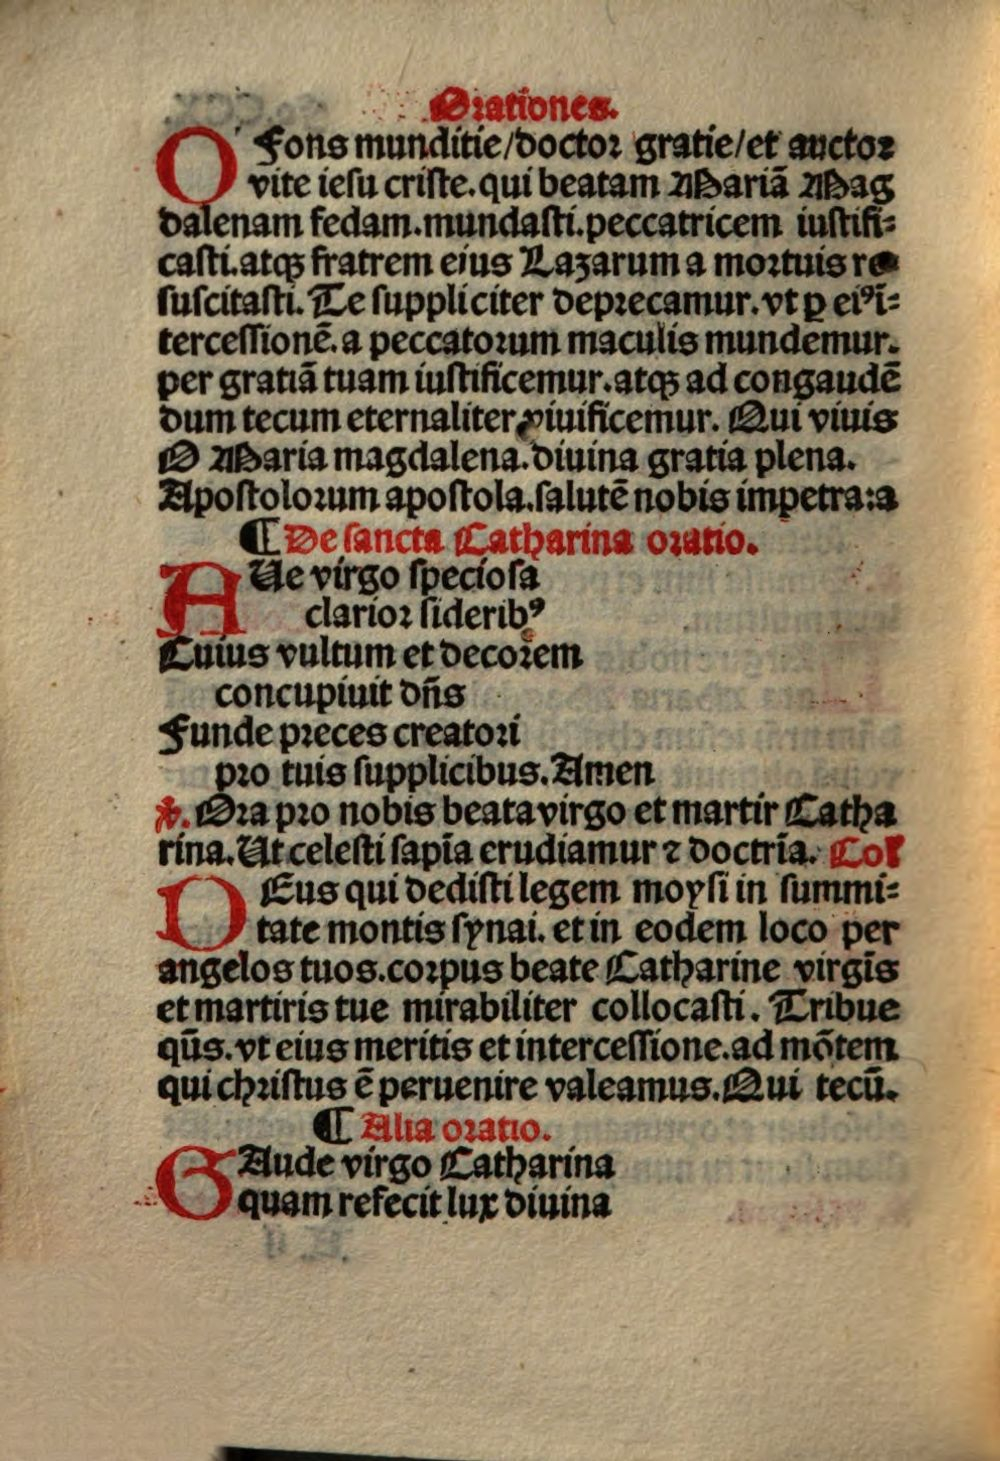 Orationes.
O Fons munditie/doctor gratie/et auctor
vite iesu criste.qui beatam Mariā Mag
dalenam fedam.mundasti.peccatricem iustifi⸗
casti.atqꝫ fratrem eius Lazarum a mortuis re
suscitasti. Te suppliciter deprecamur.vt ꝑ eiꝰ ī⸗
tercessionē.a peccatorum maculis mundemur.
per gratiā tuam iustificemur.atqꝫ ad congaudē
dum tecum eternaliter viuificemur. Qui viuis
O Maria magdalena.diuina gratia plena.
Apostolorum apostola.salutē nobis impetra:a
¶ De sancta Catharina oratio.
AUe virgo speciosa
clarior sideribꝰ
Cuius vultum et decorem
concupiuit dn̄s
Funde preces creatori
pro tuis supplicibus.Amen
℣. Ora pro nobis beata virgo et martir Catha
rina.Ut celesti sapīa erudiamur ⁊ doctrīa. Col
DEus qui dedisti legem moysi in summi⸗
tate montis synai. et in eodem loco per
angelos tuos.corpus beate Catharine virgīs
et martiris tue mirabiliter collocasti. Tribue
qūs.vt eius meritis et intercessione.ad mōtem
qui christus ē peruenire valeamus.Qui tecū.
¶ Alia oratio.
GAude virgo Catharina
quam refecit lux diuina